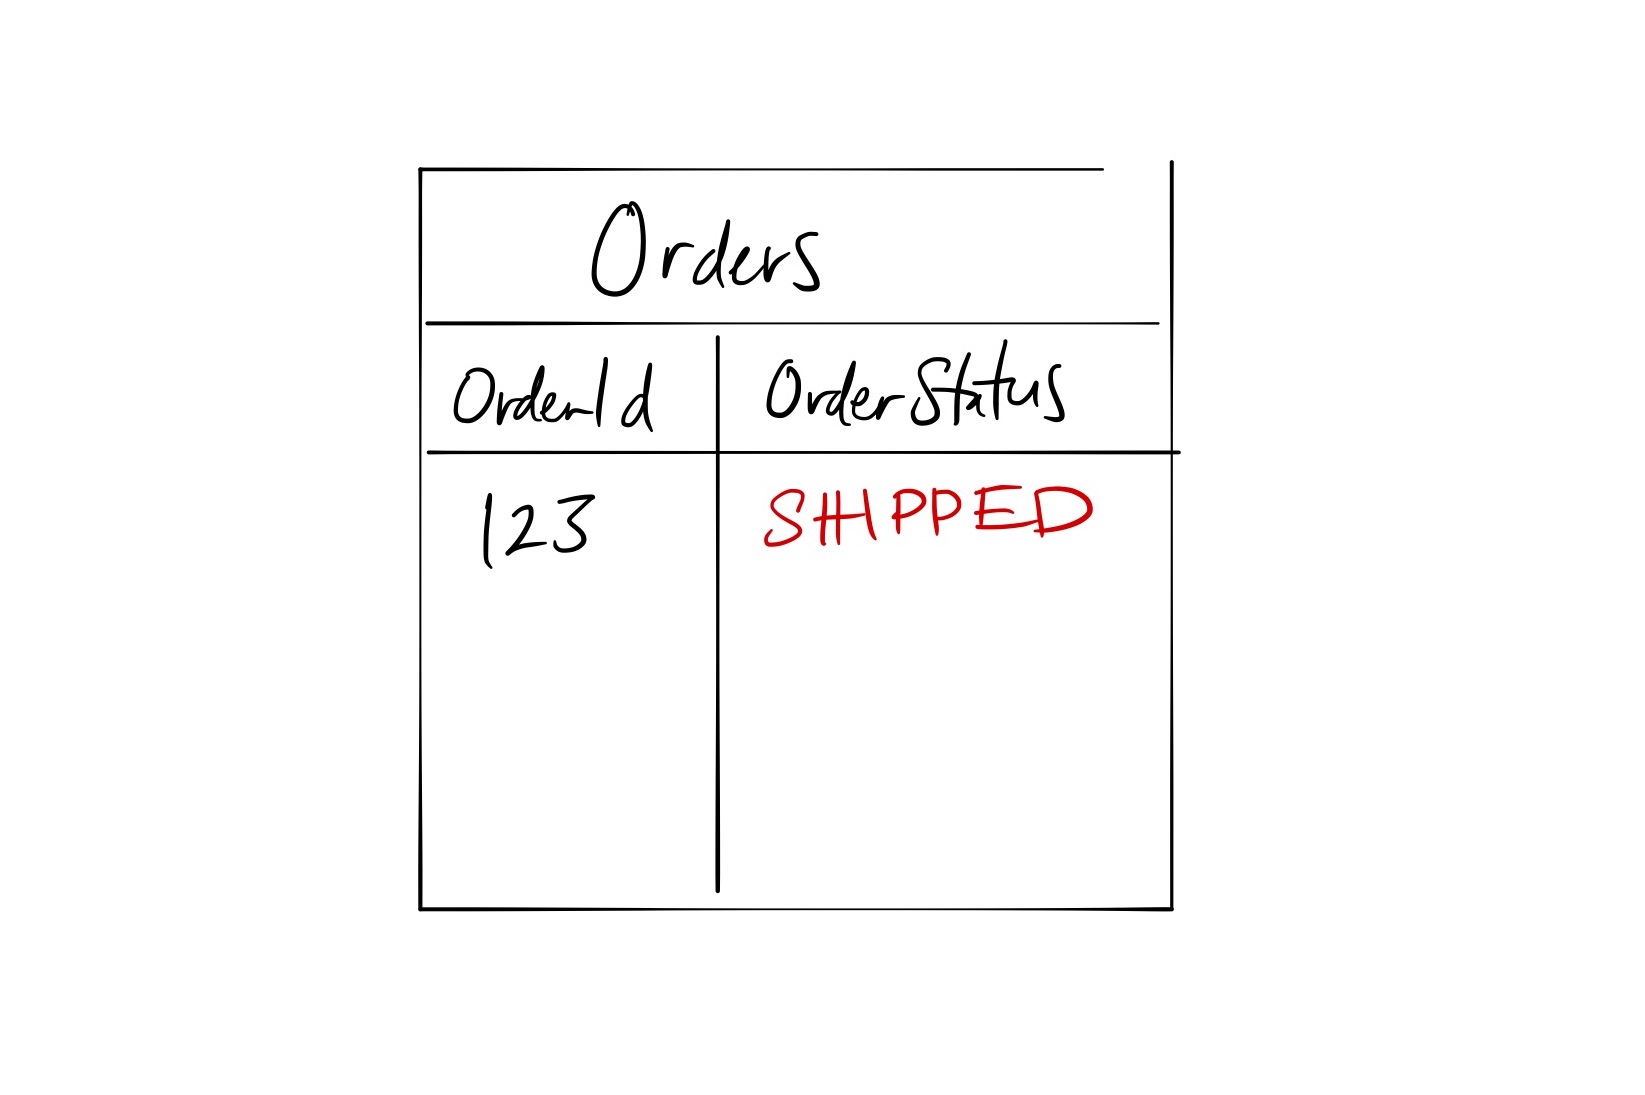 Orders
OrderId OrderStatus
123 SHIPPED